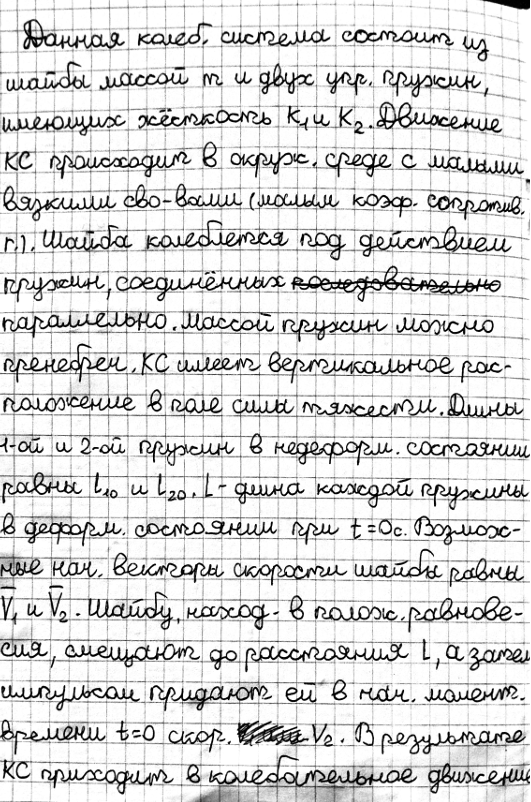 Данная колеб. система состоит из
шайбы массой m и двух упр. пружин,
имеющих жёсткость K₁ и K₂. Движение
КС происходит в окруж. среде с малыми
вязкими сво-вами (малым коэф. сопротив.
r.). Шайба колеблется под действием
пружин, соединённых последовательно
параллельно. Массой пружин можно
пренебреч. КС имеет вертикальное рас-
положение в поле силы тяжести. Длины
1-ой и 2-ой пружин в недеформ. состоянии
равны L₁₀ и L₂₀. L - длина каждой пружины
в деформ. состоянии при t=0с. Возмож-
ные нач. векторы скорости шайбы равны
V̅₁ и V̅₂. Шайбу, наход. в полож. равнове-
сия, смещают до расстояния L, а затем
импульсом придают ей в нач. момент.
времени t=0 скор. V₂. В результате
КС приходит в колебательное движение